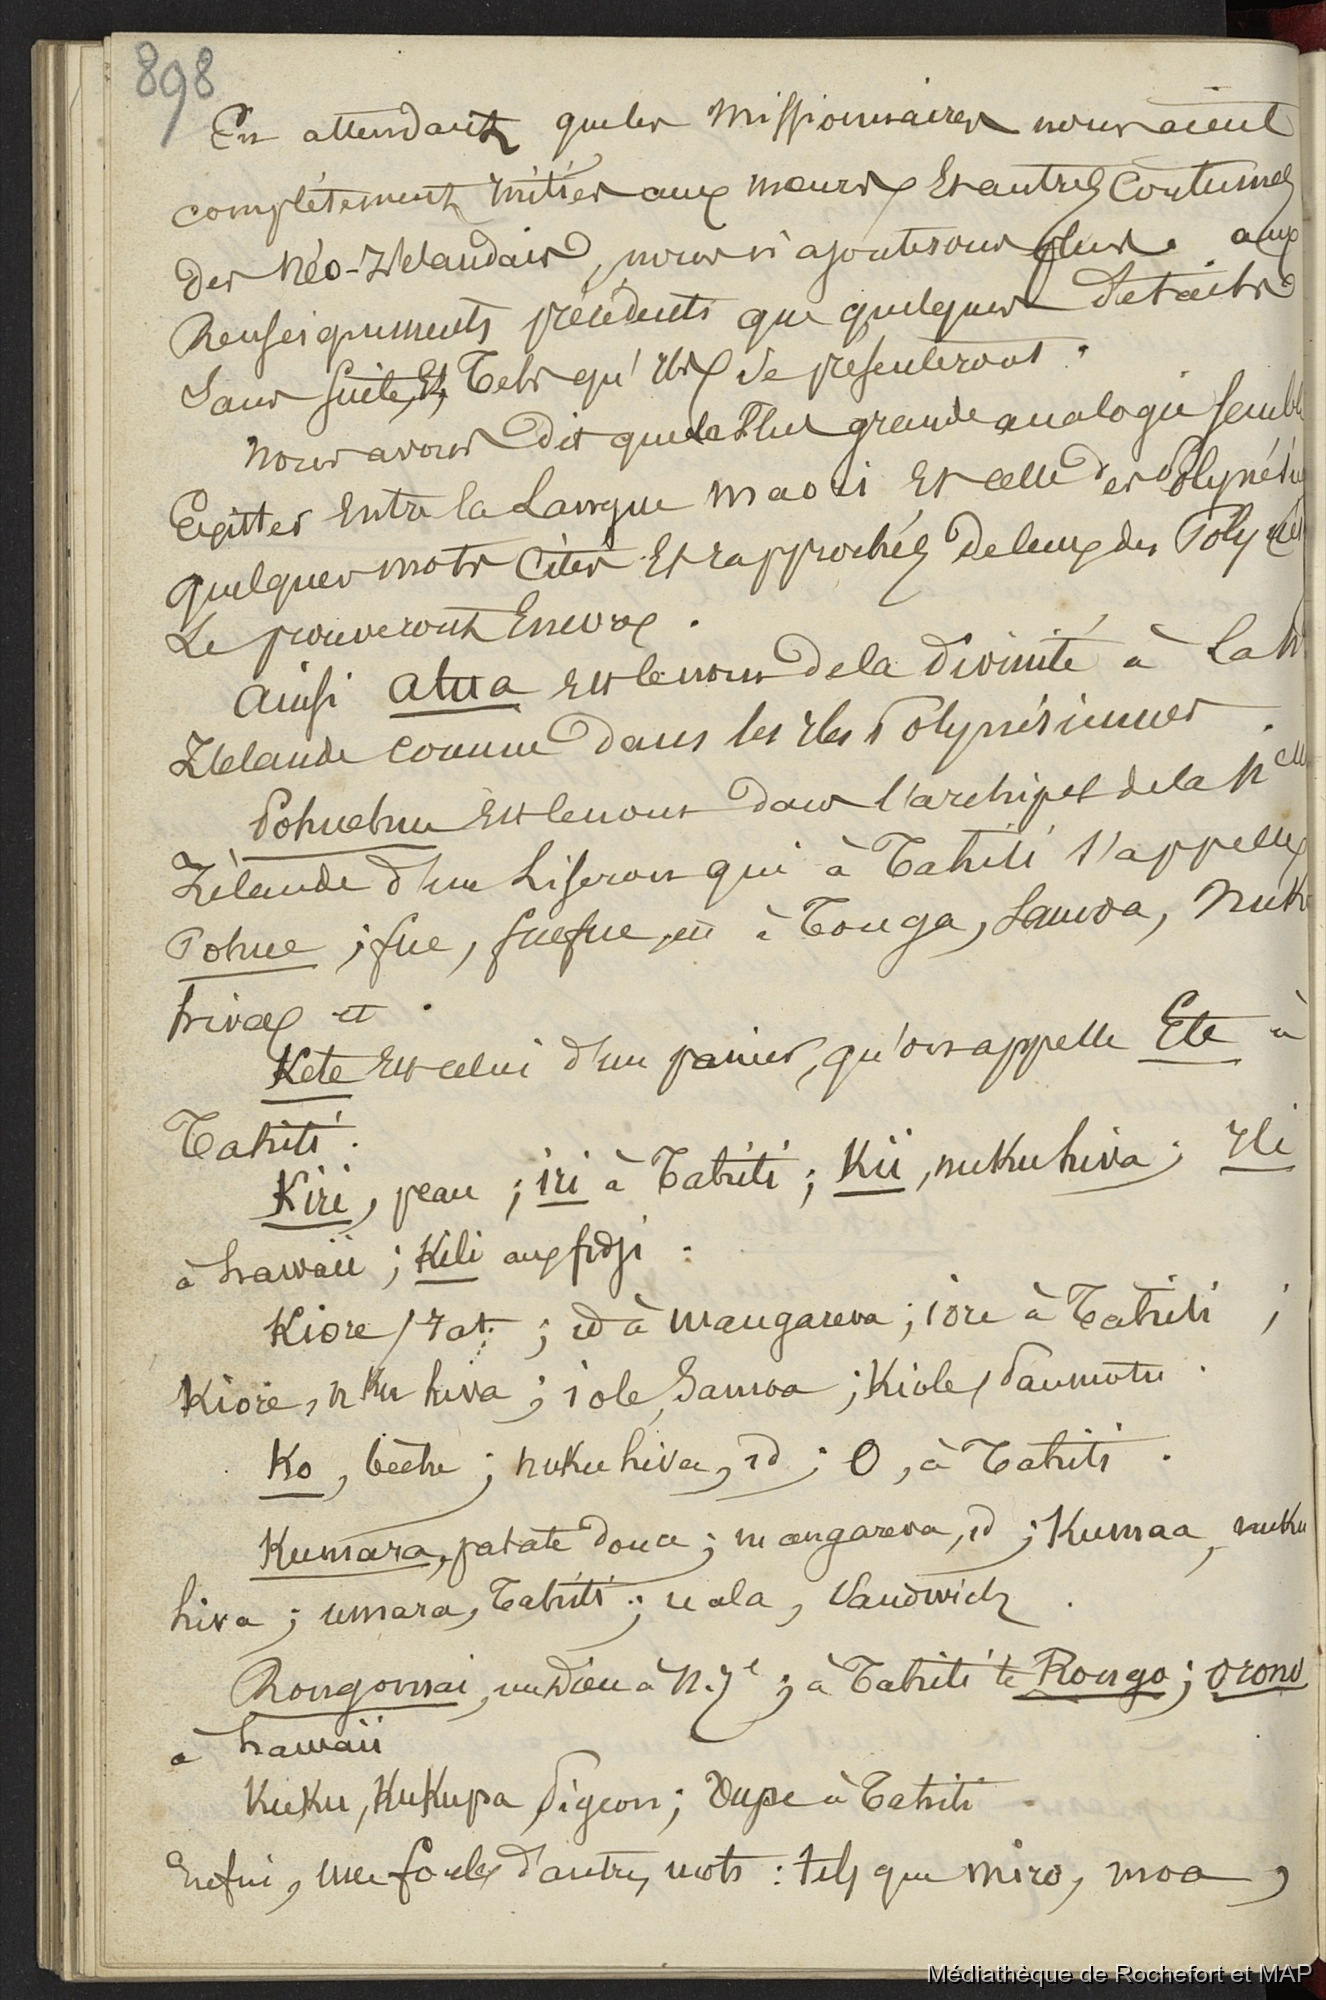 898
En attendant que les missionnaires nous aient
complétement initiés aux moeurs et autres coutumes
des Néo-Zélandais, nous n'ajouterons plus aux
Renseignements précédents que quelques détails
sans suite, et tels qu'ils se présenteront.
Nous avons dit que la plus grande analogie semble
exister entre la langue maori et celle des Polynésiens
quelques mots cités et rapprochés de ceux des Polynés
le prouveront encore.
Ainsi atua est le nom de la divinité à la N
Zélande comme dans les îles Polynésiennes.
Pohuehue est le nom dans l'archipel de la Nelle
Zélande d'un liseron qui à Tahiti s'appelle
Pohue ; fue, fuefue, à Tonga, Samoa, Nuku
hiva et.
Kete est celui d'un panier, qu'on appelle Ete à
Tahiti.
Kiri, peau ; iri à Tahiti ; Kii, nukuhiva ; Ili
à hawaii ; Kili aux fidji.
Kiore, rat ; id à mangareva ; iore à Tahiti ;
Kiore, nku hiva ; iole, Samoa ; Kiole, Paumotu.
Ko, bèche ; nuku hiva, id ; O, à Tahiti.
Kumara, patate douce ; mangareva, id ; Kumaa, nuku
hiva ; umara, Tahiti ; uala, Sandwich.
Rongomai, un Dieu à N. Ze ; à Tahiti le Rongo ; orono
à hawaii
Kuku, Kukupa, pigeon ; Uupe à Tahiti.
Enfin, une foule d'autres mots : tels que miro, moa,
Médiathèque de Rochefort et MAP